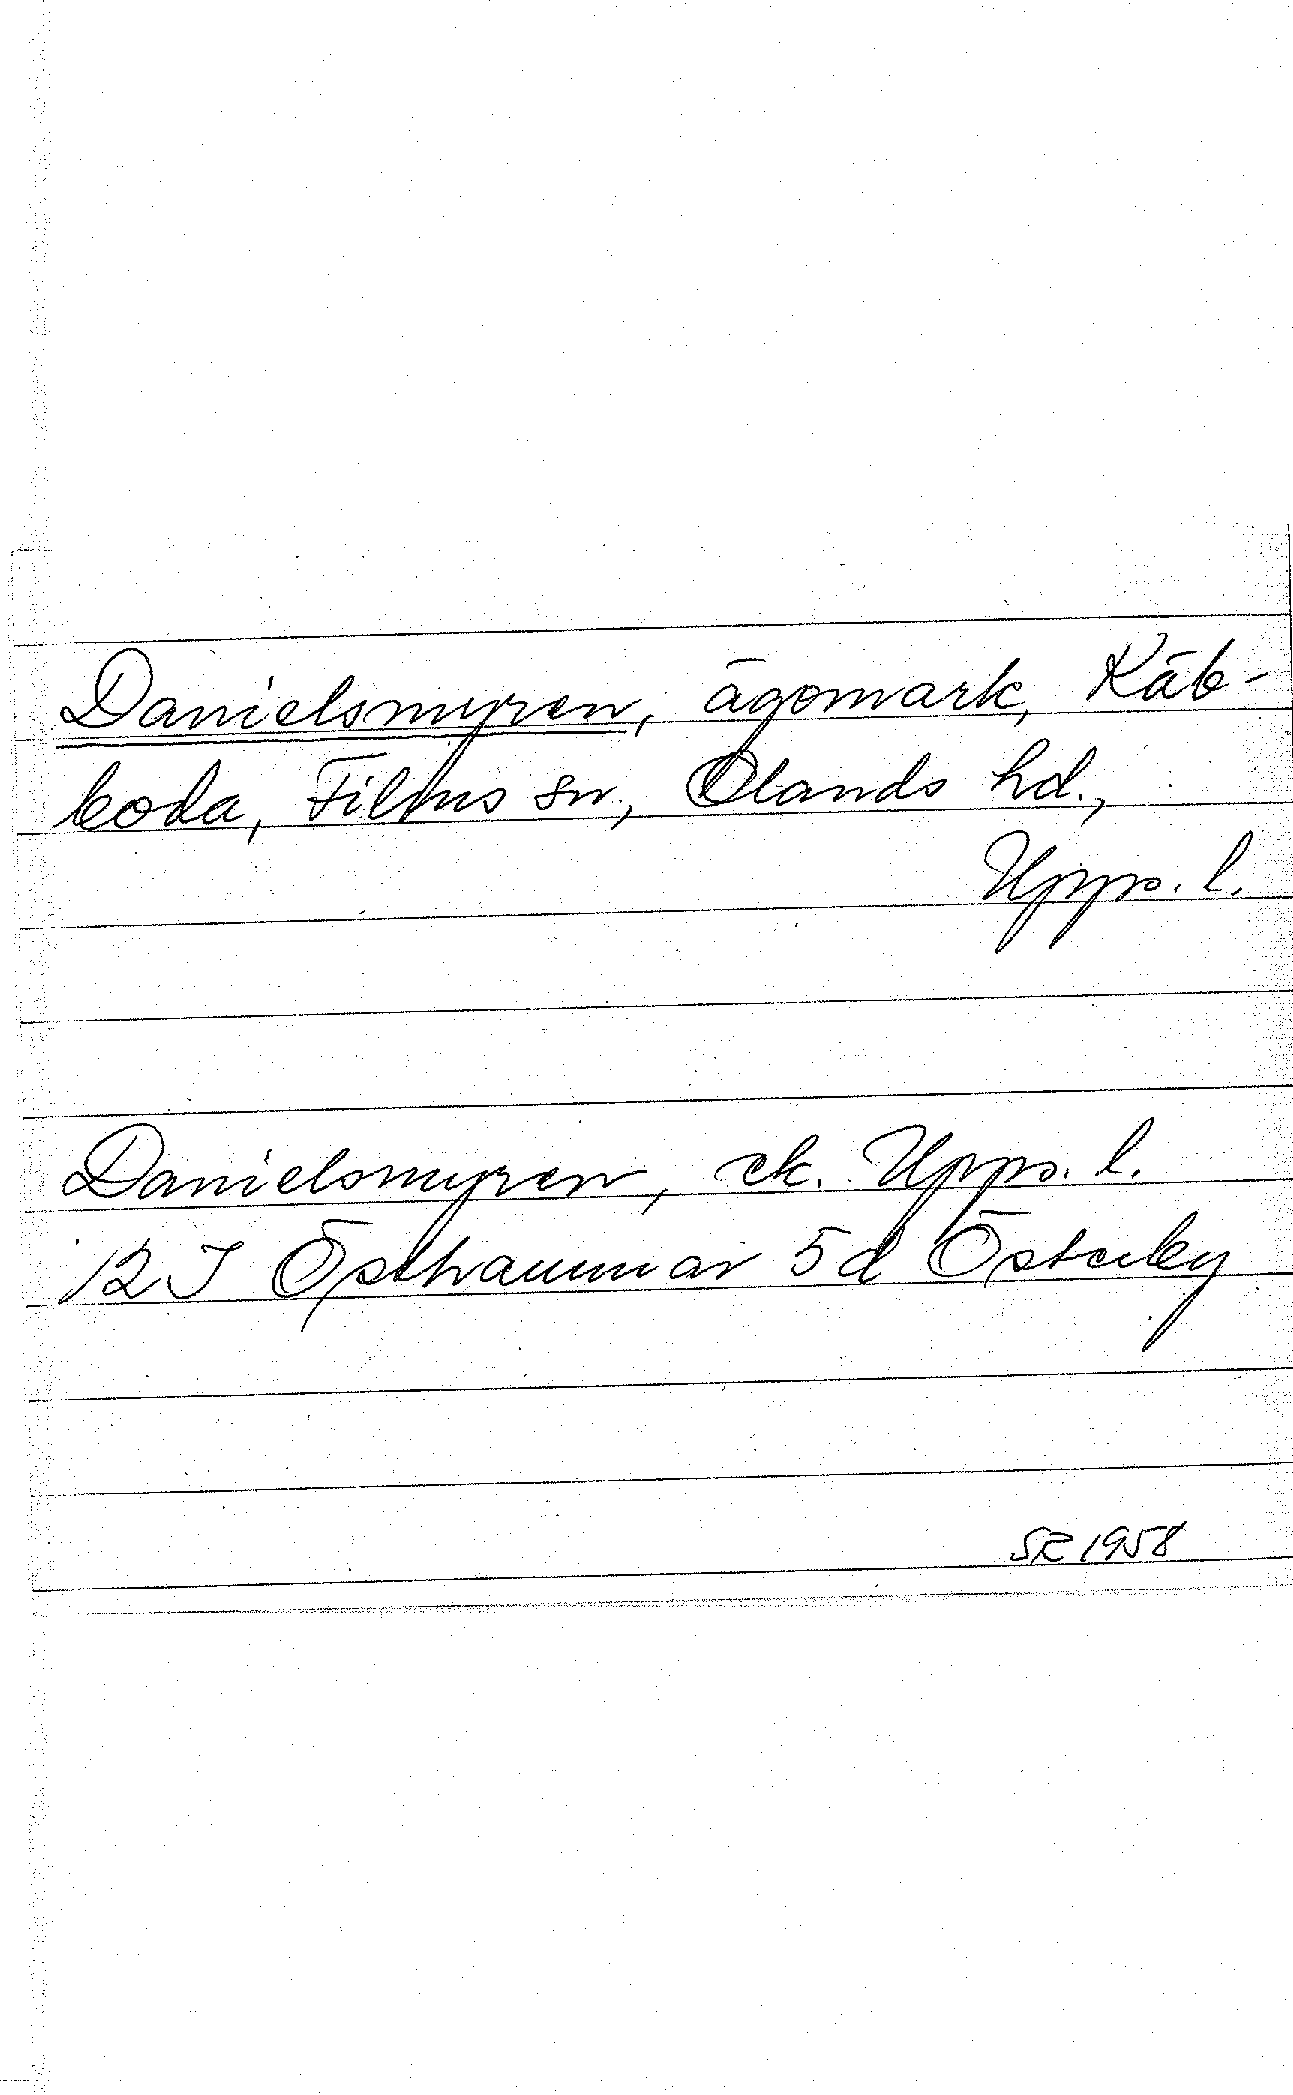 Danielsmyren, ägomark, Käb-
boda, Films sn, Olands hd.,
Upps. l.
Danielsmyren, ek. Upps. l.
12 I Östhammar 5d Österby
SR 1958